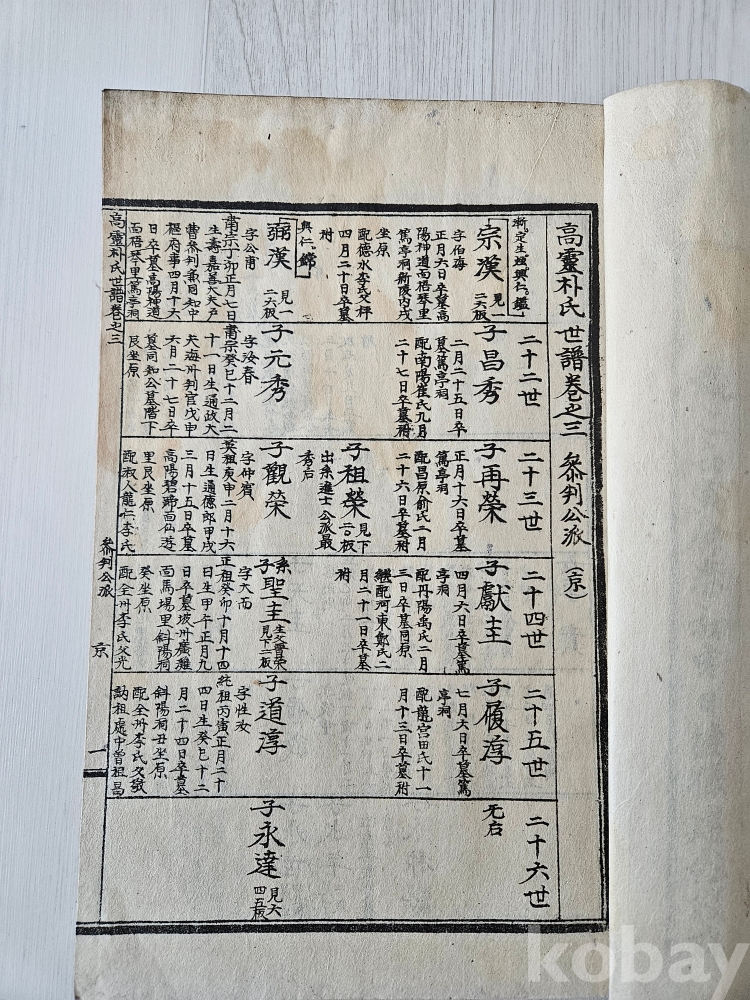 高靈朴氏世譜卷之三 叅判公派 (京)
二十二世
二十三世
二十四世
二十五世
二十六世
衍。定生斌興仁。鑑
宗漢 見一二六板
字伯海
正月六日卒墓高
陽神道面梧琴里
篤亭洞新陵內戌
坐原
配德水李氏父枰
四月二十日卒墓
祔
興仁。錦
弼漢 見一二六板
字公甫
肅宗丁卯正月七日
生壽嘉善大夫戶
曹叅判兼同知中
樞府事四月十六
日卒墓高陽神道
面梧琴里篤亭洞
子昌秀
二月二十五日卒
墓篤亭洞
配南陽崔氏九月
二十七日卒墓祔
子元秀
字汝春
肅宗癸巳十二月二
十一日生通政大
夫海州判官戊申
六月二十七日卒
墓同知公墓階下
艮坐原
子再榮
正月十六日卒墓
篤亭洞
配昌原俞氏二月
二十六日卒墓祔
子祖榮 見下二〇板
出系進士公派最
秀后
子觀榮
字仲賓
英祖庚申二月十六
日生通德郎甲戌
三月十五日卒墓
高陽碧蹄面仙遊
里艮坐原
配淑人龍仁李氏
子獻圭
四月六日卒墓篤
亭洞
配丹陽禹氏二月
三日卒墓同原
繼配河東鄭氏二
月二十一日卒墓
祔
系子聖圭 生父晋榮見下二板
字大而
正祖癸卯十月十四
日生甲午正月九
日卒墓坡州廣灘
面馬場里斜陽洞
癸坐原
配全州李氏父光
子履淳
七月六日卒墓篤
亭洞
配龍宮田氏十一
月十三日卒墓祔
子道淳
字性汝
純祖丙寅正月二十
四日生癸巳十二
月二十四日卒墓
斜陽洞丑坐原
配全州李氏父敬
訥祖處中曾祖昌
无后
子永達 見六四五板
高靈朴氏世譜卷之三
叅判公派
京
一
kobay